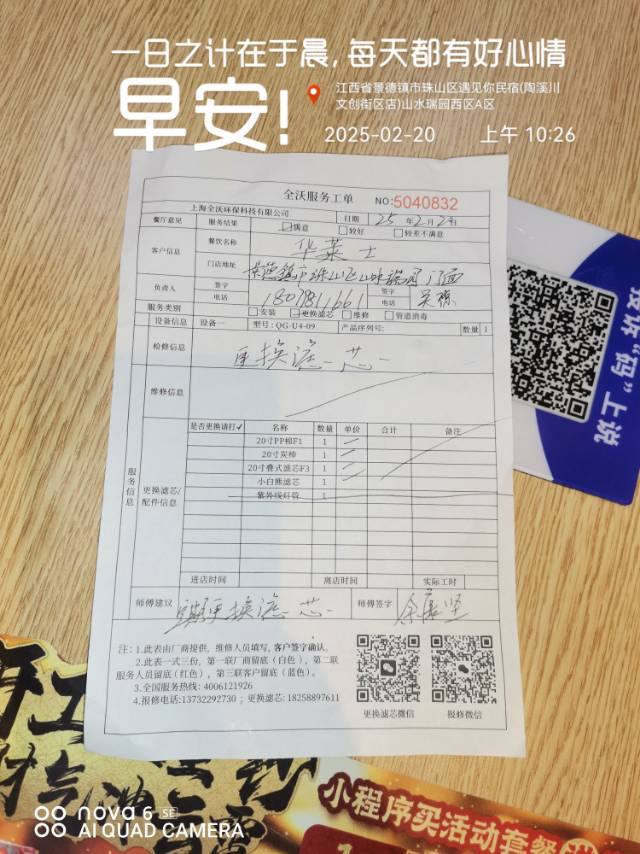 一日之计在于晨,每天都有好心情
早安!
江西省景德镇市珠山区遇见你民宿(陶溪川
文创街区店)山水瑞园西区A区
2025-02-20 上午 10:26
全沃服务工单 NO:5040832
上海全沃环保科技有限公司 日期 25年2月2日
餐厅意见 服务结果 满意 较好 较差不满意
客户信息 餐饮名称 华莱士
门店地址 景德镇市珠山区山水瑞园门面
负责人 签字 电话 签字 电话
服务类别 安装 更换滤芯 维修 管道消毒
设备信息 设备一 型号:QG-U4-09 产品序列号: 数量 1
检修信息 更换滤芯
维修信息
服务信息
更换滤芯/配件信息
是否更换请打✓ 名称 数量 单价 合计 备注
20寸PP棉F1 1
20寸炭棒 1
20寸叠式滤芯F3 1
小白熊滤芯 1
紫外线灯管 1
进店时间 离店时间 实际工时
师傅建议 更换滤芯 师傅签字
注:1.此表由厂商提供,维修人员填写,客户签字确认。
2.此表一式三份,第一联厂商留底(白色)、第二联
服务人员留底(红色)、第三联客户留底(蓝色)。
3.全国服务热线:4006121926
4.报修电话:13732292730 ; 更换滤芯:18258897611
更换滤芯微信 报修微信
码"上说
小程序买活动套餐
nova 6 SE
AI QUAD CAMERA